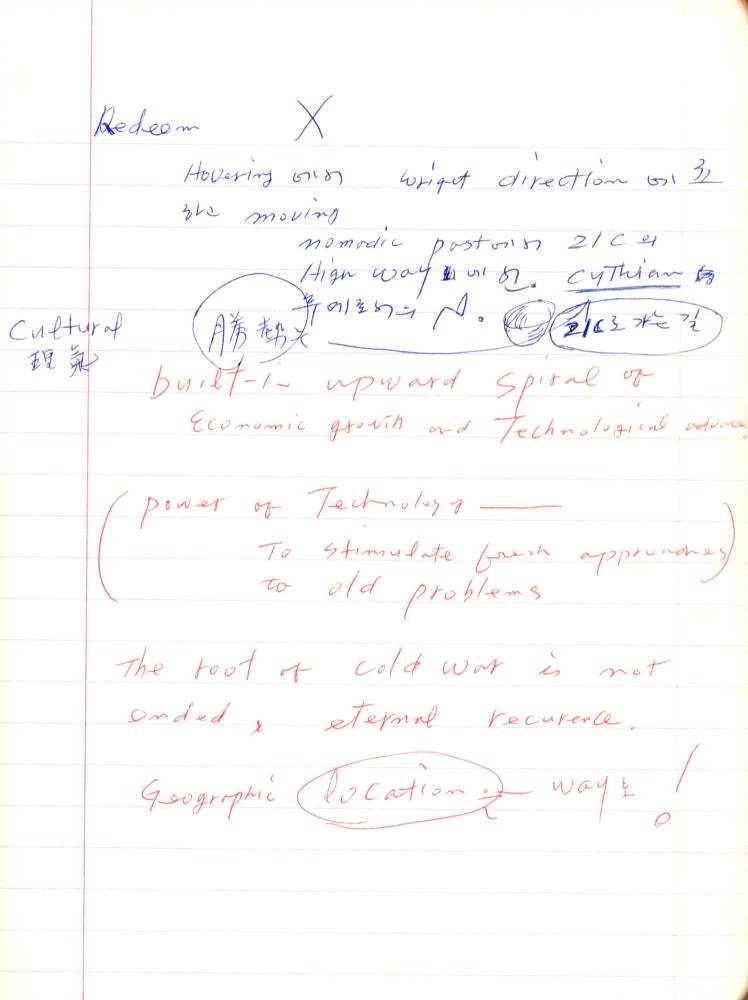 Redeem X
Hovering 에서 wright direction 에 표
하고 moving
nomadic past에서 21C의
High way 에선. Cythian
후예로서의 N. 21C로 가는 길
勝勢
Cultural
理氣
built-in upward spiral of
Economic growth and Technological advance
(power of Technology —
To stimulate fresh approaches)
to old problems
The root of cold war is not
ended, eternal recurence.
Geographic location way로!